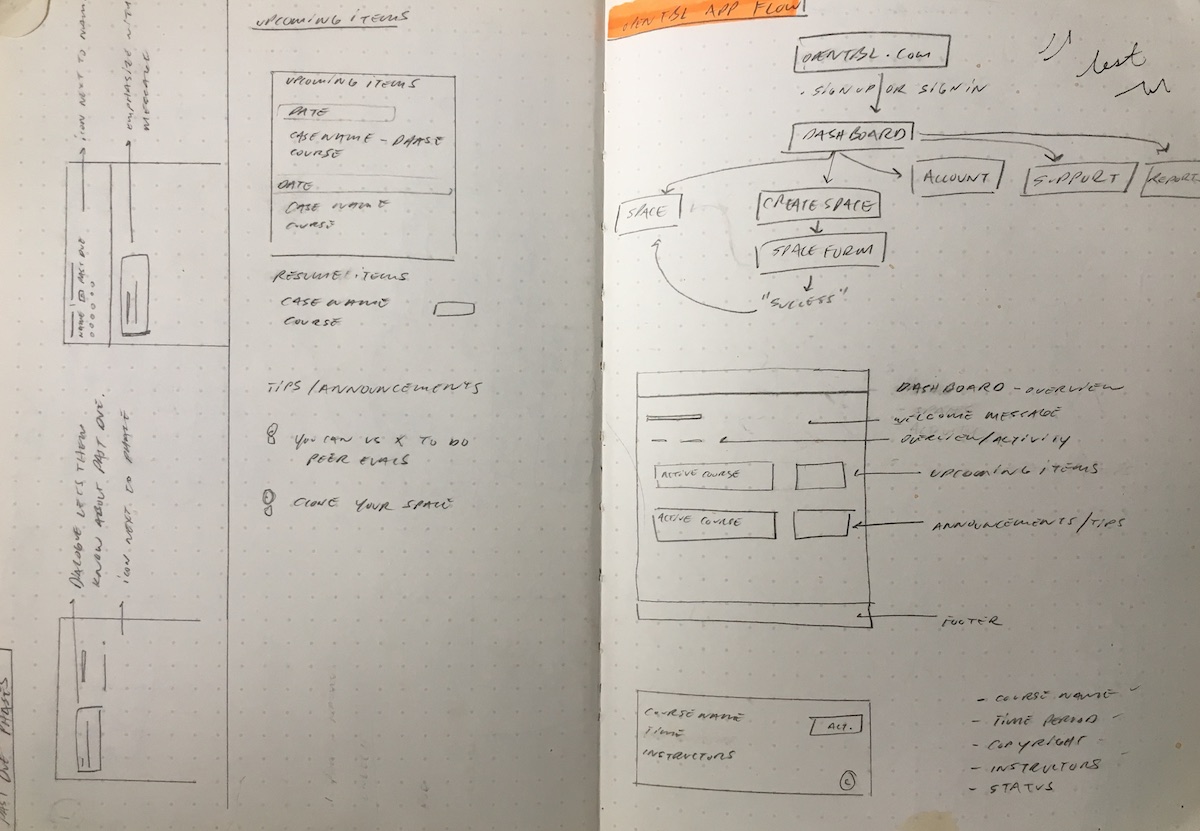 ICON NEXT TO NAME
EMPHASIZE WITH
MESSAGE
NAME PAST DUE
DIALOGUE LETS THEM
KNOW ABOUT PAST DUE.
ICON NEXT TO PHASE
PAST DUE PHASES
UPCOMING ITEMS
UPCOMING ITEMS
DATE
CASE NAME - PHASE
COURSE
DATE
CASE NAME
COURSE
RESUME ITEMS
CASE NAME
COURSE
TIPS/ANNOUNCEMENTS
YOU CAN US X TO DO
PEER EVALS
CLONE YOUR SPACE
OPENTBL APP FLOW
OPENTBL.COM
test
. SIGNUP OR SIGN IN
DASHBOARD
SPACE
CREATE SPACE
ACCOUNT
SUPPORT
REPORT
SPACE FORM
"SUCCESS"
DASHBOARD - OVERVIEW
WELCOME MESSAGE
OVERVIEW/ACTIVITY
ACTIVE COURSE
UPCOMING ITEMS
ACTIVE COURSE
ANNOUNCEMENTS/TIPS
FOOTER
COURSE NAME
TIME
INSTRUCTORS
ACT.
C
- COURSE NAME
- TIME PERIOD
- COPYRIGHT
- INSTRUCTORS
- STATUS